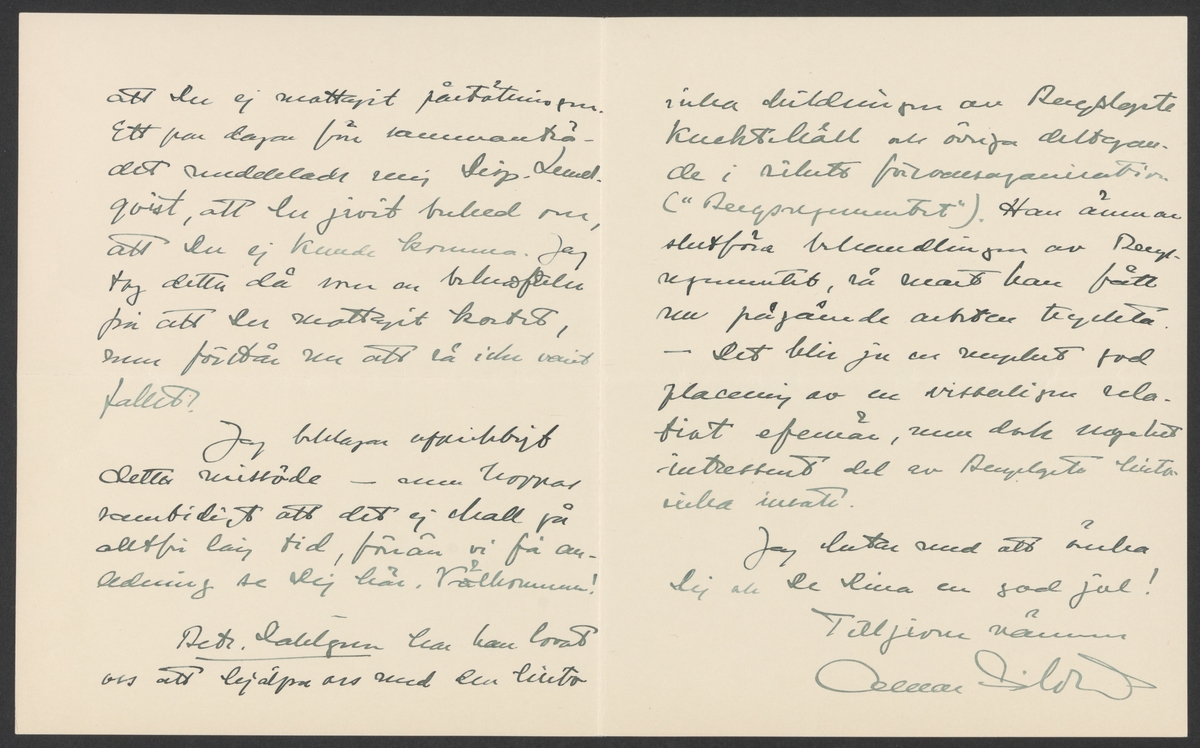 att Du ej mottagit påstötningen.
Ett par dagar före sammanträ-
det meddelade mig Disp. Lund-
qvist, att Du givit besked om,
att Du ej kunde komma. Jag
tog detta då som en bekräftelse
på att Du mottagit kortet,
men förstår nu att så icke varit
fallet!
Jag beklagar uppriktigt
detta missöde – men hoppas
samtidigt att det ej skall gå
alltför lång tid, förrän vi få an-
ledning se Dig här. Välkommen!
Betr. Dahlgren har han lovat
oss att hjälpa oss med den histo
riska skildringen av Bergslagets
Knekthåll och övriga deltagan-
de i rikets försvarsorganisation
("Bergsregementet"). Han ämnar
slutföra behandlingen av Bergs-
regementet, så snart han fått
nu pågående arbeten tryckta.
– Det blir ju en mycket god
placering av en visserligen rela-
tivt efemär, men dock mycket
intressant del av Bergslagets histo
riska insats.
Jag slutar med att önska
Dig och De Dina en god jul!
Tillgivne vännen